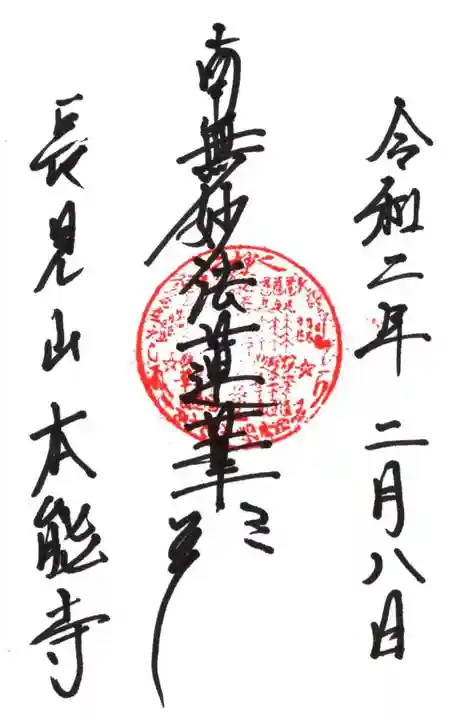 令和二年 二月八日
南無妙法蓮華経
長見山 本能寺